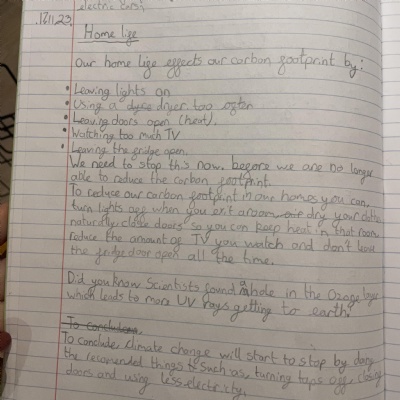 electric cars;
17.11.23.
Home life
Our home life effects our carbon footprint by:
• Leaving lights on
• Using a dryer too often
• Leaving doors open (heat).
• Watching too much TV
• Leaving the fridge open.
We need to stop this now. before we are no longer
able to reduce the carbon footprint.
To reduce our carbon footprint in our homes you can,
turn lights off when you exit a room, dry your clothes
naturally, close doors so you can keep heat in that room,
reduce the amount of TV you watch and don't leave
the fridge door open all the time.
Did you know Scientists found a hole in the Ozone layer
which leads to more UV rays getting to earth.
To conclude climate change will start to stop by doing
the recomended things such as, turning taps off, closing
doors and using less electricity.